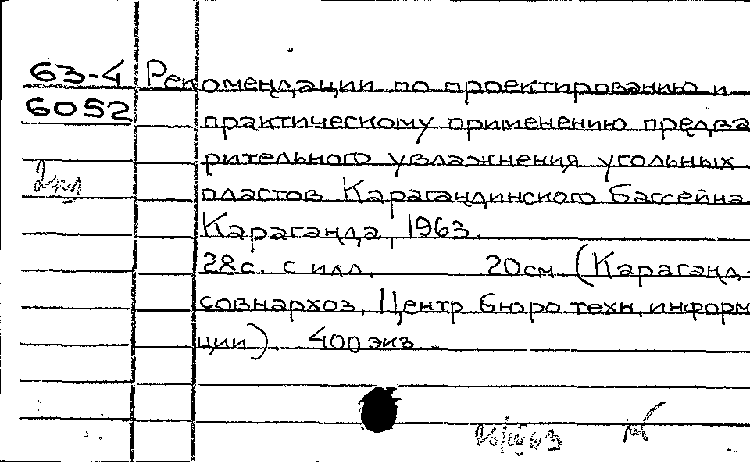 63-4 Рекомендации по проектированию и
6052 практическому применению предва
рительного увлажнения угольных
2 экз пластов Карагандинского бассейна
Караганда, 1963.
28с. с илл. 20см (Караганд.
совнархоз. Центр бюро техн. информ
ции). 400 экз.